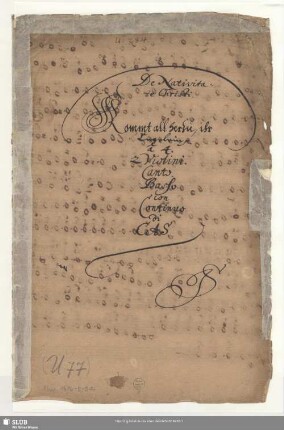 De Nativita
te Christi.
Kommt all herzu, ihr
Engelein
à 4.
2 Violini
Canto
Basso
con
Continuo
di
(U 77)
SLUB
Wir führen Wissen.